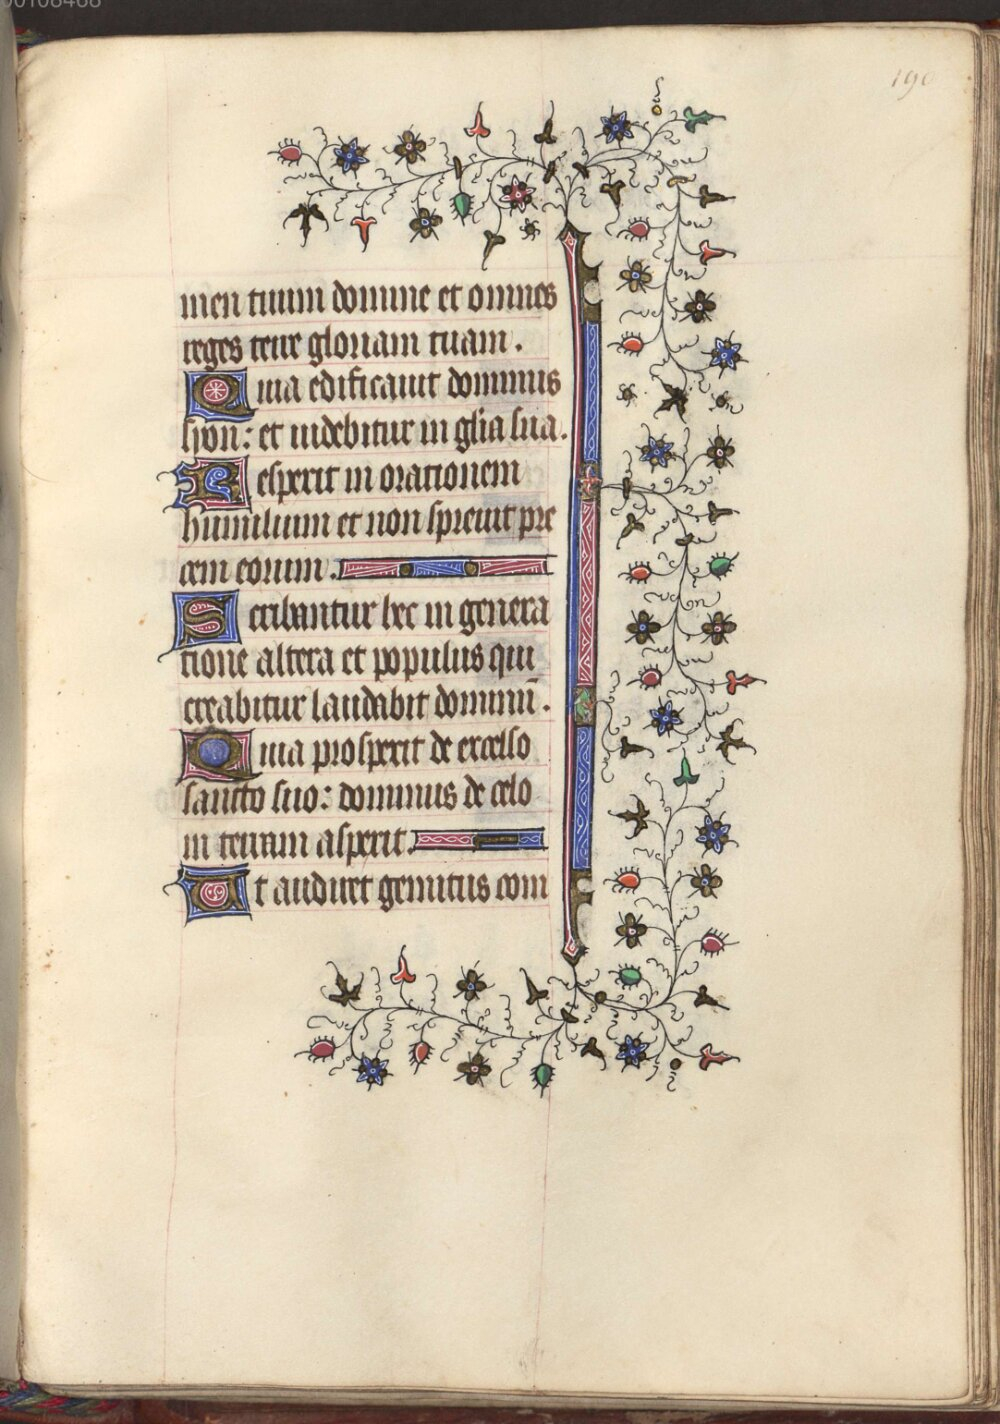 190
men tuum domine et omnes
reges terre gloriam tuam.
Quia edificauit dominus
syon: et uidebitur in glia sua.
Respexit in orationem
humilium et non spreuit pre
cem eorum.
Scribantur hec in genera
tione altera et populus qui
creabitur laudabit dominū.
Quia prospexit de excelso
sancto suo: dominus de celo
in terram aspexit.
Ut audiret gemitus com